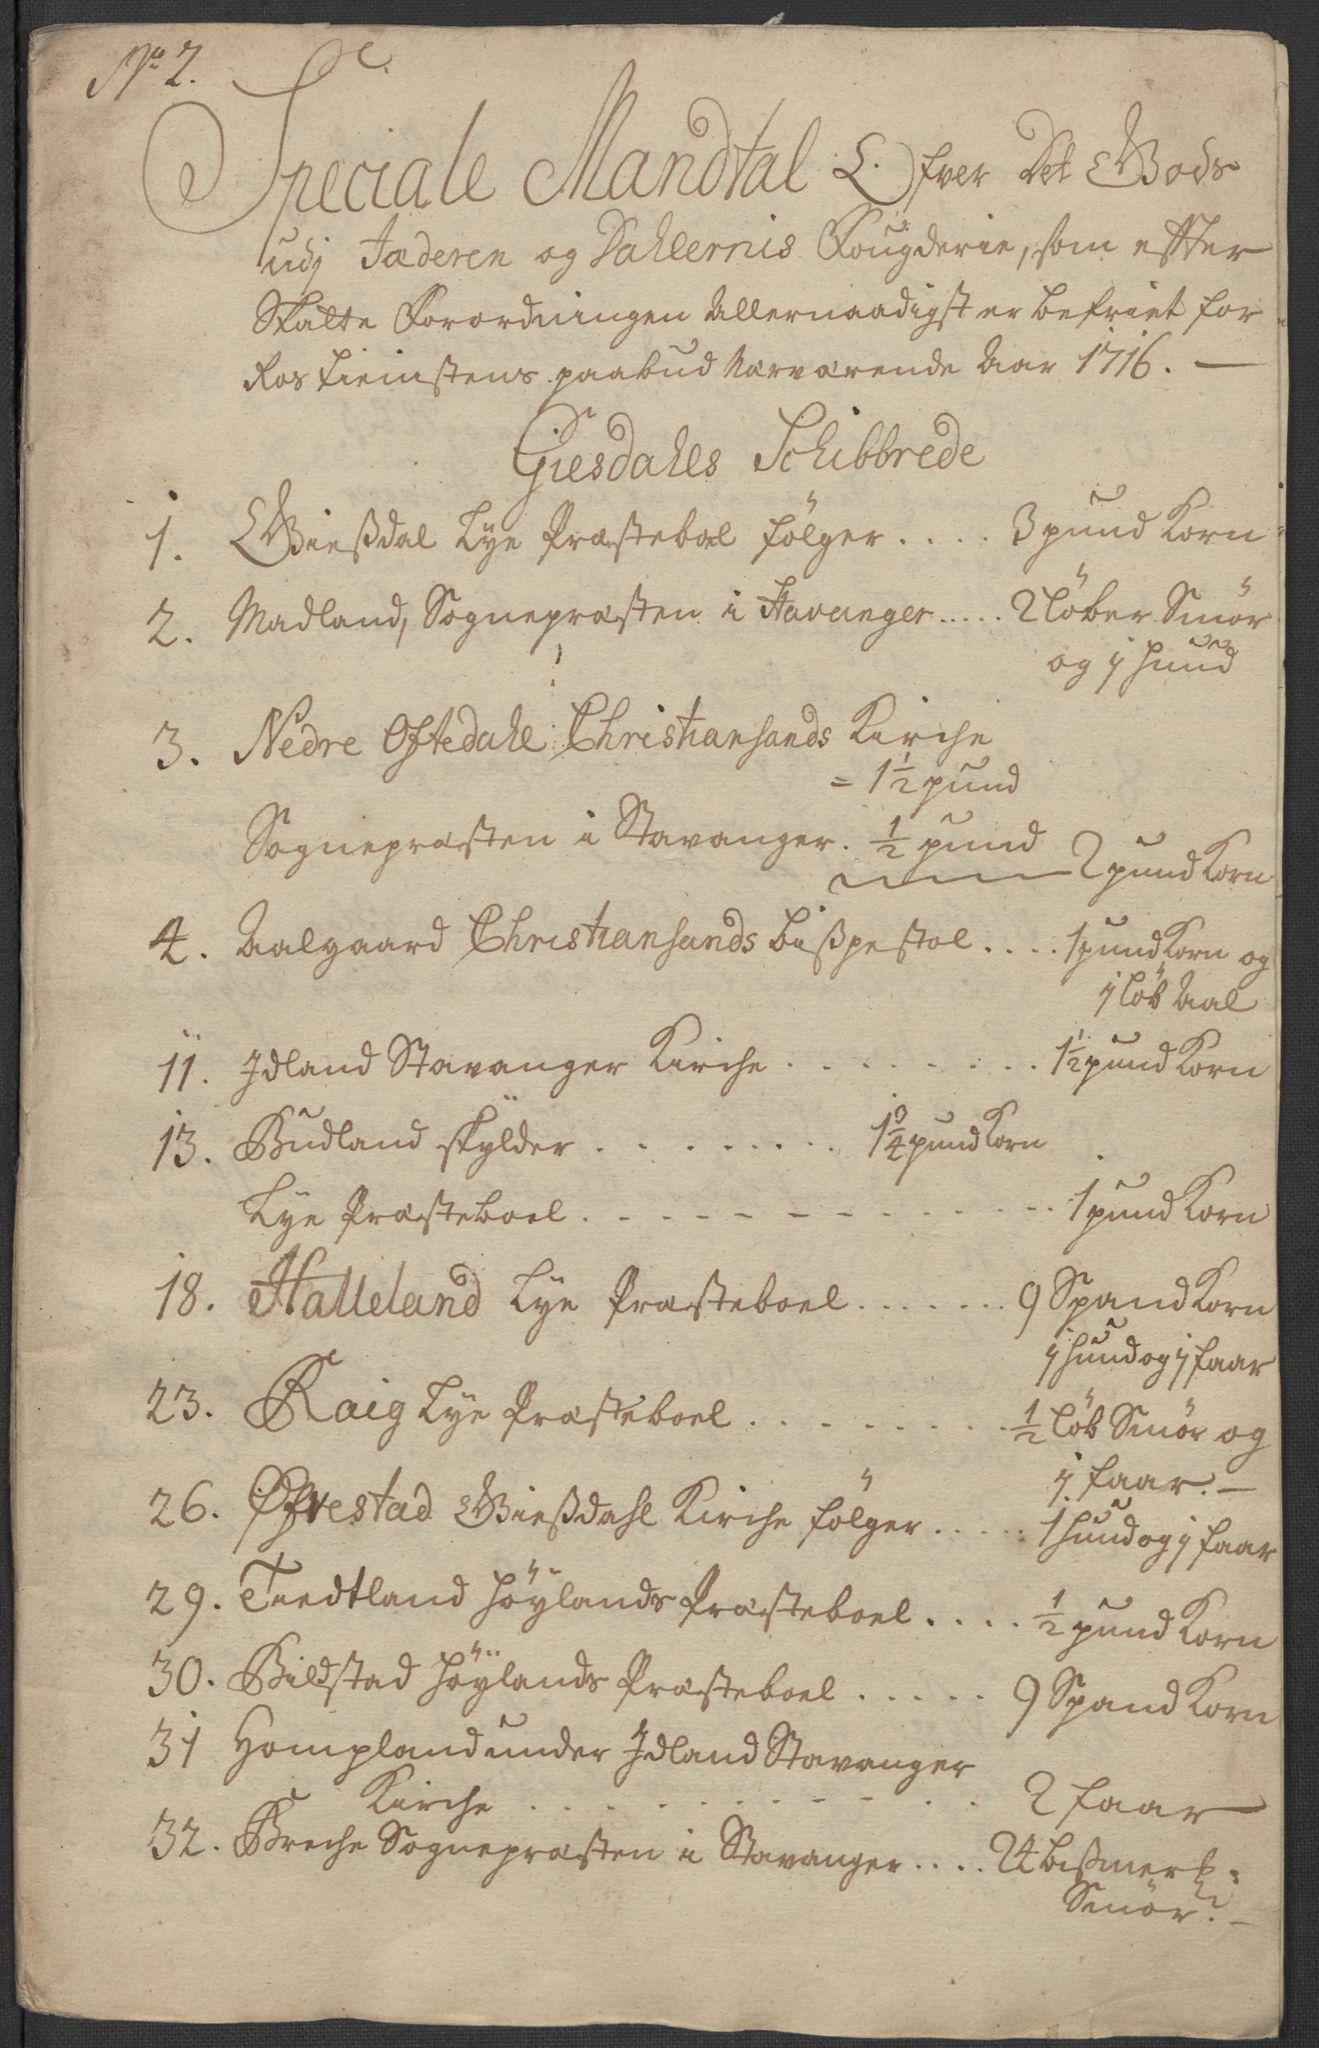 No 2.
Speciale Mandtal Ofver Det Gods
udj Jæderen og Dahlernis Fougderie, som efter
Skatte Forordningen Allernaadigst er befriet for
Ros tienistens paabud Nærværende Aar 1716. —
Giesdahls Schibbrede
1. Gießdal Lÿe Præsteboel følger .... 3 pund Korn
2. Madland, Sognepræsten i Stavanger ..... 2 løber Smør
og j hund
3. Nedre Oftedahl Christiansands Kirche
= 1½ pund
Sognepræsten i Stavanger. ½ pund
2 pund Korn
4. Aalgaard Christiansands bißpestol .... 1 pund Korn og
j løb Aal
11. Idland Stavanger Kirche ........ 1½ pund Korn
13. Budland skÿlder ........ 1¾ pund Korn
Lÿe Præsteboel ............ 1 pund Korn
18. Halleland Lÿe Præsteboel ....... 9 Spand Korn
j hund og j faar
23. Raig Lÿe Præsteboel ........ ½ løb Smør og
j faar. —
26. Øfrestad Gießdahl Kirche følger ..... 1 hund og j faar
29. Tiedtland Høÿlands Præsteboel .... ½ pund Korn
30. Bildstad Høÿlands Præsteboel ..... 9 Spand Korn
31 Hompland under Idland Stavanger
Kirche .......... 2 faar
32. Breche Sognepræsten i Stavanger .... 24 bißmerk:
Smør. —